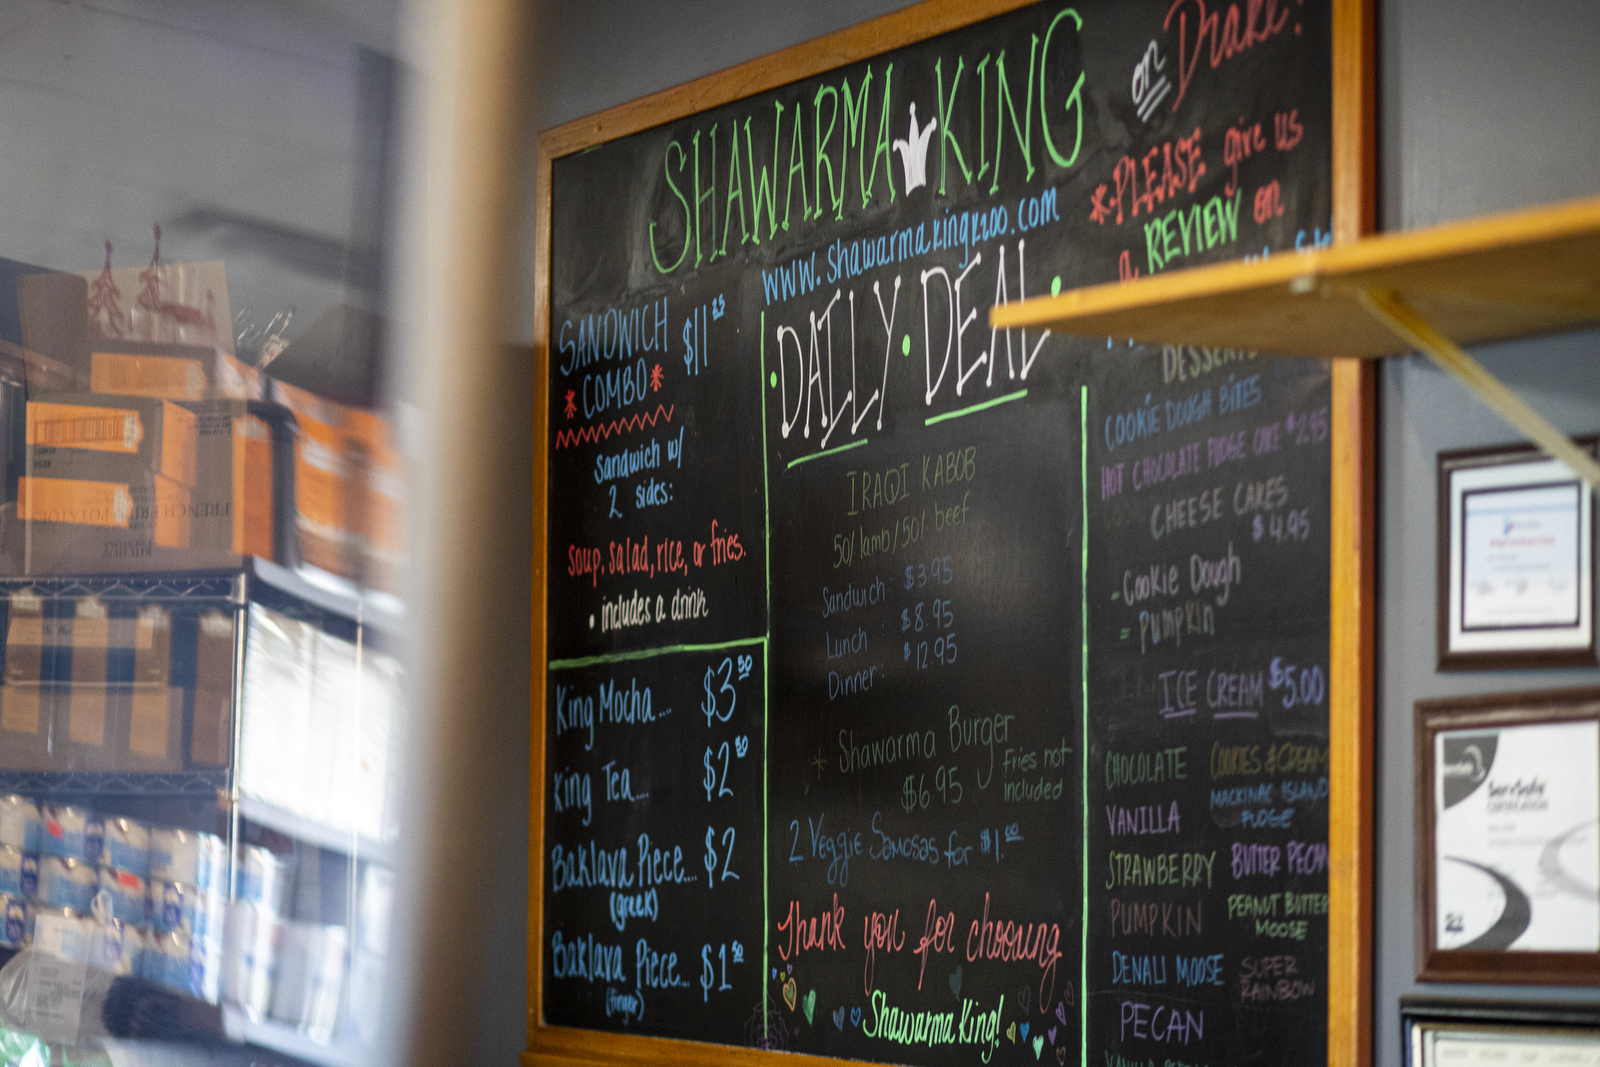 SHAWARMA KING
on Drake!
www.shawarmakingkzoo.com
*PLEASE give us
a REVIEW on
SANDWICH $11.25
* COMBO *
Sandwich w/
2 sides:
soup, salad, rice, or fries.
• includes a drink
King Mocha.... $3.50
King Tea.... $2.50
Baklava Piece.... $2
(greek)
Baklava Piece... $1.50
(finger)
• DAILY • DEAL •
IRAQI KABOB
50% lamb/50% beef
Sandwich: $3.95
Lunch: $8.95
Dinner: $12.95
* Shawarma Burger
$6.95 Fries not
included
2 Veggie Samosas for $1.00
Thank you for choosing
Shawarma King!
DESSERTS
COOKIE DOUGH BITES
HOT CHOCOLATE FUDGE CAKE $2.95
CHEESE CAKES
$4.95
- Cookie Dough
- Pumpkin
ICE CREAM $5.00
CHOCOLATE
VANILLA
STRAWBERRY
PUMPKIN
DENALI MOOSE
PECAN
COOKIES & CREAM
MACKINAC ISLAND
FUDGE
BUTTER PECAN
PEANUT BUTTER
MOOSE
SUPER
RAINBOW
ServSafe
CERTIFICATION